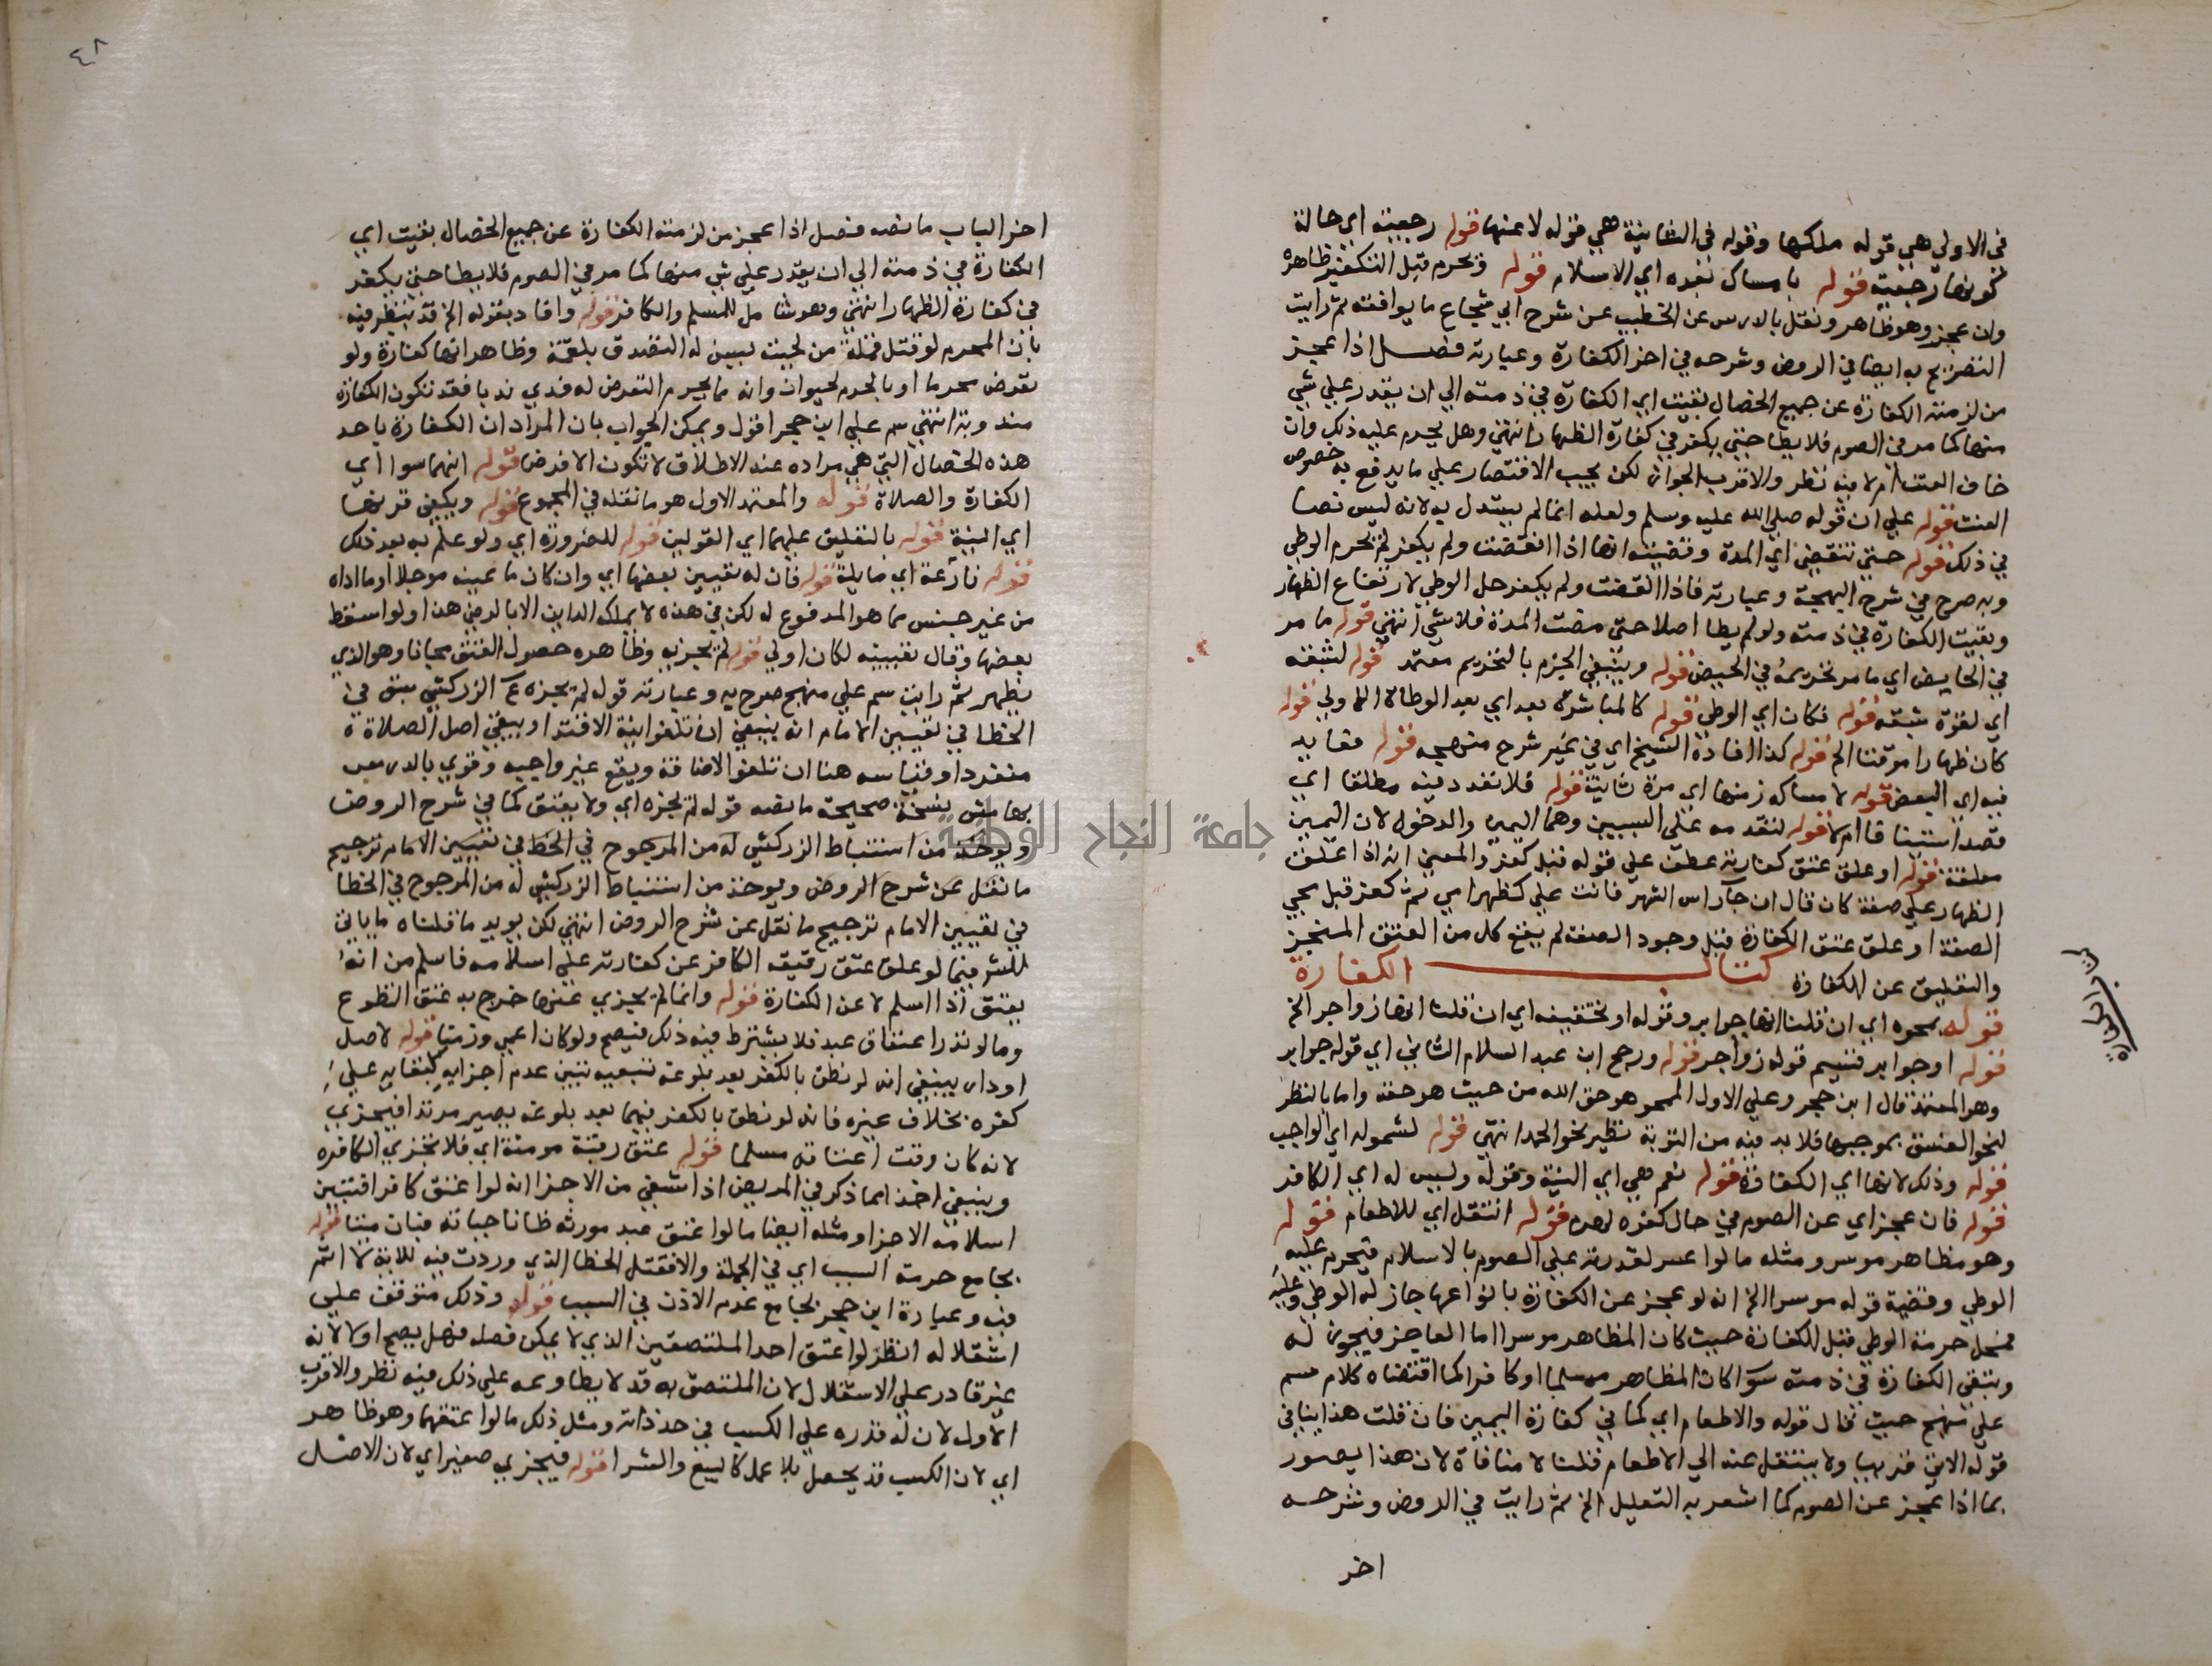 في الاولى هي قوله ملكها وقوله في الثانية هي قوله لا عنها قوله رجعية اي حالة
كونها رجعية قوله بامساك بعده اي الاسلام قوله وتحرم قبل التكفير ظاهره
وان عجز وهو ظاهر ونقل بالدرس عن الخطيب عن شرح ابي شجاع ما يوافقه ثم رايت
التصريح به ايضا في الروض وشرحه في اخر الكفارة وعبارته فصل اذا عجز
من لزمته الكفارة عن جميع الخصال بقيت اي الكفارة في ذمته الي ان يقدر علي شي
منها كما مر في الصوم فلا يطا حتي يكفر في كفارة الظهار انتهي وهل يحرم عليه ذلك وان
خاف العنت ام لا فيه نظر والاقرب الجواز لكن يجب الاقتصار علي ما يدفع به خصوص
العنت قوله علي ان قوله صلي الله عليه وسلم ولعله انما لم يستدل به لانه ليس نصا
في ذلك قوله حتي تنقضي اي المدة وقضيته انها اذا انقضت ولم يكفر لم يحرم الوطي
وبه صرح في شرح البهجة وعبارته فاذا انقضت ولم يكفر حل الوطي لارتفاع الظهار
وبقيت الكفارة في ذمته ولو لم يطا اصلا حتي مضت المدة فلا شي انتهي قوله ما مر
في الحايض اي ما مر تحريمه في الحيض قوله وينبغي الجزم بالتحريم معتمد قوله لشبقه
اي لقوة شبقه قوله فكان اي الوطي قوله كالمباشرة بعد اي بعد الوطا الاولي قوله
كان ظهارا موقتا الخ قوله كذا افاده الشيخ اي في غير شرح منهجه قوله مقابد
فيه اي البعض قوله لامساك زمنها اي مرة ثانية قوله فلا تعدد فيه مطلقا اي
قصد استينافا ام لا قوله لتقدمه علي السببين وهما اليمين والدخول لان اليمين
معلقة قوله او علق عتق كفارته عطف علي قوله قبل كفر والمعني انه اذا علق
الظهار علي صفة كان قال ان جا راس الشهر فانت علي كظهر امي ثم كفر قبل مجي
الصفة او علق عتق الكفارة قبل وجود الصفة لم يقع كل من العتق المنجز
والتعليق عن الكفارة كتاب الكفارة
قوله بمحوه اي ان قلنا انها جوابر وقوله او بتخفيفه اي ان قلنا انها زواجر الخ
قوله او جوابر قسيم قوله زواجر قوله ورجح ابن عبد السلام الثاني اي قوله جوابر
وهو المعتمد قال ابن حجر وعلي الاول الممحو هو حق الله من حيث هو حقه واما بالنظر
لنحو الفسق بموجبها فلا بد فيه من التوبة نظير نحو الحد انتهي قوله لشموله اي الواجب
قوله وذلك لانها اي الكفارة قوله نعم هي اي النية وقوله وليس له اي الكافر
قوله فان عجز اي عن الصوم في حال كفره لهرم قوله انتقل اي للاطعام قوله
وهو مظاهر موسر ومثله ما لو اعسر لقدرته علي الصوم بالاسلام فيحرم عليه
الوطي وقضية قوله موسرا الخ انه لو عجز عن الكفارة بانواعها جاز له الوطي وعليه
فمحل حرمة الوطي قبل الكفارة حيث كان المظاهر موسرا اما العاجز فيجوز له
وتبقي الكفارة في ذمته سوا كان المظاهر مسلما او كافرا كما اقتضاه كلام سم
علي منهج حيث قال قوله والاطعام اي كما في كفارة اليمين فان قلت هذا ينافي
قوله الاتي قريبا ولا ينتقل عنه الي الاطعام قلت لا منافاة لان هذا يصور
بما اذا عجز عن الصوم كما اشعر به التعليل الخ ثم رايت في الروض وشرحه
اخر
كتاب الكفارة
٤٨
اخر الباب ما نصه فصل اذا عجز من لزمته الكفارة عن جميع الخصال بقيت اي
الكفارة في ذمته الي ان يقدر علي شي منها كما مر في الصوم فلا يطا حتي يكفر
في كفارة الظهار انتهي وهو شامل للمسلم والكافر قوله وافاد بقوله الخ قد ينظر فيه
بان المحرم لو قتل قملة من لحيته يسن له التصدق بلقمة وظاهر انها كفارة ولو
تعرض محرم او بالحرم لحيوان وانه مما يحرم التعرض له فدي ندبا فقد تكون الكفارة
مندوبة انتهي سم علي ابن حجر اقول ويمكن الجواب بان المراد ان الكفارة باحد
هذه الخصال التي هي مراده عند الاطلاق لا تكون الا فرضا قوله انهما سوا اي
الكفارة والصلاة قوله والمعتمد الاول هو ما نقله في المجموع قوله ويكفي قرنها
اي النية قوله بالتعليق عليهما اي القولين قوله للضرورة اي ولو علم به بعد ذلك
قوله نازعة اي مايلة قوله فان له تعيين بعضها اي وان كان ما عينه موجلا او ما اداه
من غير جنس مما هو المدفوع له لكن في هذه لا يملكه الداين الا بالرضي هذا ولو اسقط
بعضها وقال تعيينه لكان اولي قوله لم يجزيه وظاهره حصول العتق مجانا وهو الذي
يظهر ثم رايت سم علي منهج صرح به وعبارته قوله لم يجزه ع الزركشي سبق في
الخطا في تعيين الامام انه ينبغي ان تلغو نية الاقتدا ويبقي اصل الصلاة
منفردا وقياسه هنا ان تلغو الاضافة ويقع عن واجبه وقوي بالدرس
بهامش نسخة صحيحة ما نصه قوله لم يجزه اي ولا يعتق كما في شرح الروض
ويوخذ من استنباط الزركشي له من المرجوح في الخطا في تعيين الامام ترجيح
ما نقل عن شرح الروض ويوخذ من استنباط الزركشي له من المرجوح في الخطا
في تعيين الامام ترجيح ما نقل عن شرح الروض انتهي لكن يويد ما قلناه ما ياتي
للش فيما لو علق عتق رقيقه الكافر عن كفارته علي اسلامه فاسلم من انه
يعتق اذا اسلم لا عن الكفارة قوله وانما لم يجزي عتقها خرج به عتق التطوع
وما لو نذر اعتاق عبد فلا يشترط فيه ذلك فيصح ولو كان اعمي وزمنا قوله لاصل
او دار ينبغي انه لو نطق بالكفر بعد بلوغه تبعيه تبين عدم اجزايه لبقايه علي
كفره بخلاف غيره فانه لو نطق بالكفر فيهما بعد بلوغه يصير مرتدا فيجزي
لانه كان وقت اعتاقه مسلما قوله عتق رقبة مومنة اي فلا تجزي الكافره
وينبغي اخذا مما ذكر في المريض اذا شفي من الاجزا انه لو اعتق كافرا فتبين
اسلامه الاجزا ومثله ايضا ما لو اعتق عبد مورثه ظانا حياته فبان ميتا قوله
بجامع حرمة السبب اي في الجملة والا فقتل الخطا الذي وردت فيه للاية لا اثم
فيه وعبارة ابن حجر بجامع عدم الاذن في السبب قوله وذلك متوقف علي
استقلاله انظر لو اعتق احد الملتصقين الذي لا يمكن فصله فهل يصح او لا لانه
غير قادر علي الاستقلال لان الملتصق به قد لا يطاوعه علي ذلك فيه نظر والاقرب
الاول لان له قدرة علي الكسب في حد ذاته ومثل ذلك ما لو اعتقهما وهو ظاهر
اي لان الكسب قد يحصل بلا عمل كالبيع والشرا قوله فيجزي صغير اي لان الاصل
جامعة النجاح الوطنية